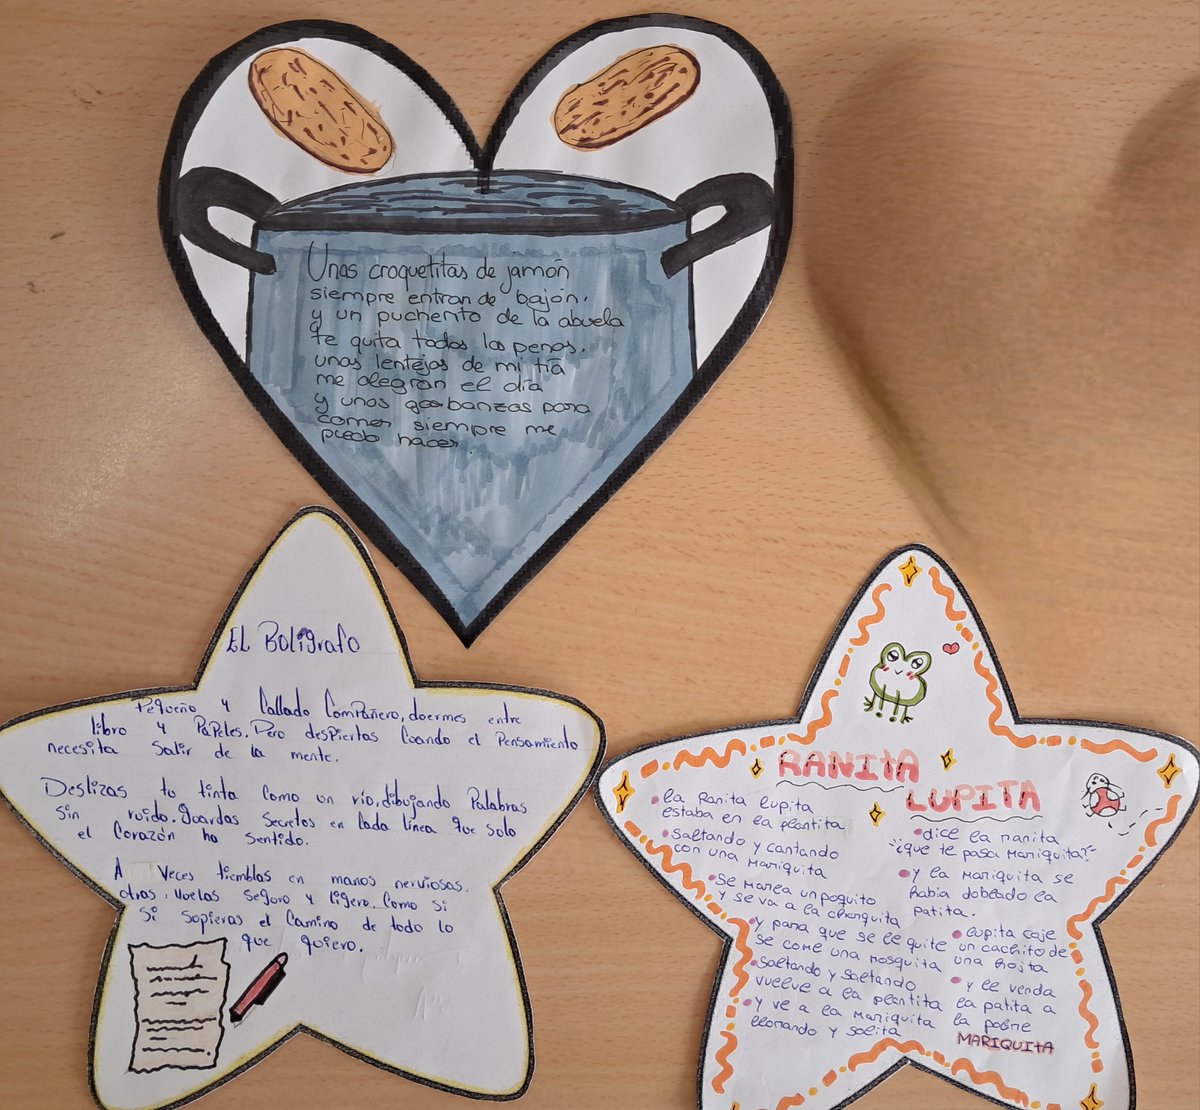 Unas croquetitas de jamón
siempre entran de bajón.
y un pucherito de la abuela
te quita todas las penas.
unas lentejas de mi tía
me alegran el día
y unos garbanzos para
comer siempre me
puedo hacer.
EL Bolígrafo
Pequeño y Callado Compañero, doermes entre
libro y Papeles. Pero despiertas Cuando el Pensamiento
necesita Salir de la mente.
Deslizas tu tinta Como un río, dibujando Palabras
Sin ruido. guardas Secretos en Cada línea que solo
el Corazón ha Sentido.
A Veces tiemblas en manos nerviosas.
otras. vuelas Seguro y ligero. Como Si
Si Supieras el Camino de todo lo
que quiero.
RANITA
LUPITA
la Ranita lupita
estaba en la plantita
Saltando y cantando
con una Mariquita
Se marea un poquito
y se va a la charquita
y para que se le quite
se come una mosquita
Saltando y saltando
vuelve a la plantita
y ve a la Mariquita
llorando y solita
dice la ranita
¿que te pasa Mariquita?
y la Mariquita se
habia doblado la
patita.
lupita coje
un cachito de
una hojita
y le venda
la patita a
la pobre
MARIQUITA